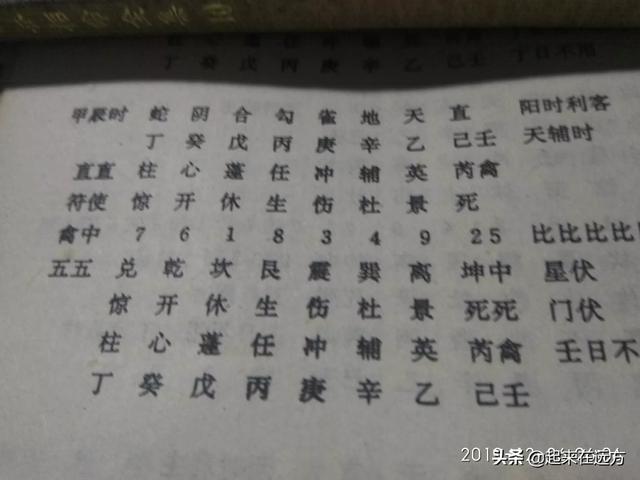 丁 癸 戊 丙 庚 辛 乙 己壬 丁日不用
甲辰时 蛇 阴 合 勾 雀 地 天 直 阳时利客
丁 癸 戊 丙 庚 辛 乙 己壬 天辅时
直直 柱 心 蓬 任 冲 辅 英 芮禽
符使 惊 开 休 生 伤 杜 景 死
禽中 7 6 1 8 3 4 9 25 比比比比
五五 兑 乾 坎 艮 震 巽 离 坤中 星伏
惊 开 休 生 伤 杜 景 死死 门伏
柱 心 蓬 任 冲 辅 英 芮禽 壬日不
丁 癸 戊 丙 庚 辛 乙 己壬
头条 @起来在远方